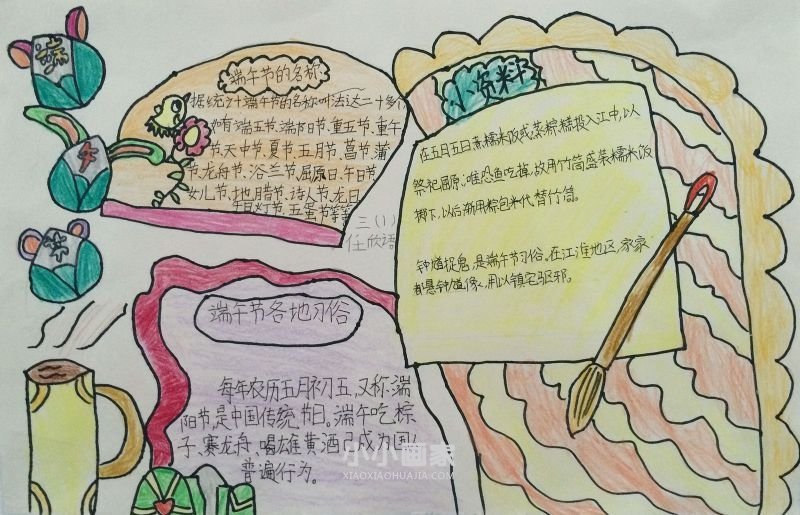 端
午
节
端午节的名称
据统计端午节的名称叫法达二十多个
如有端五节、端阳节、重五节、重午
节、天中节、夏节、五月节、菖节、蒲
节、龙舟节、浴兰节、屈原日、午日节
女儿节、地腊节、诗人节、龙日、
午日、灯节、五蛋节等等
三(1)
任欣语
小资料
在五月五日煮糯米饭或蒸粽糕投入江中,以
祭祀屈原。唯恐鱼吃掉,故用竹筒盛装糯米饭
掷下,以后渐用粽包米代替竹筒。
钟馗捉鬼,是端午节习俗。在江淮地区,家家
都悬钟馗像,用以镇宅驱邪。
端午节各地习俗
每年农历五月初五,又称端
阳节,是中国传统节日。端午吃粽
子、赛龙舟、喝雄黄酒已成为国人
普遍行为。
小小画家
XIAOXIAOHUAJIA.COM